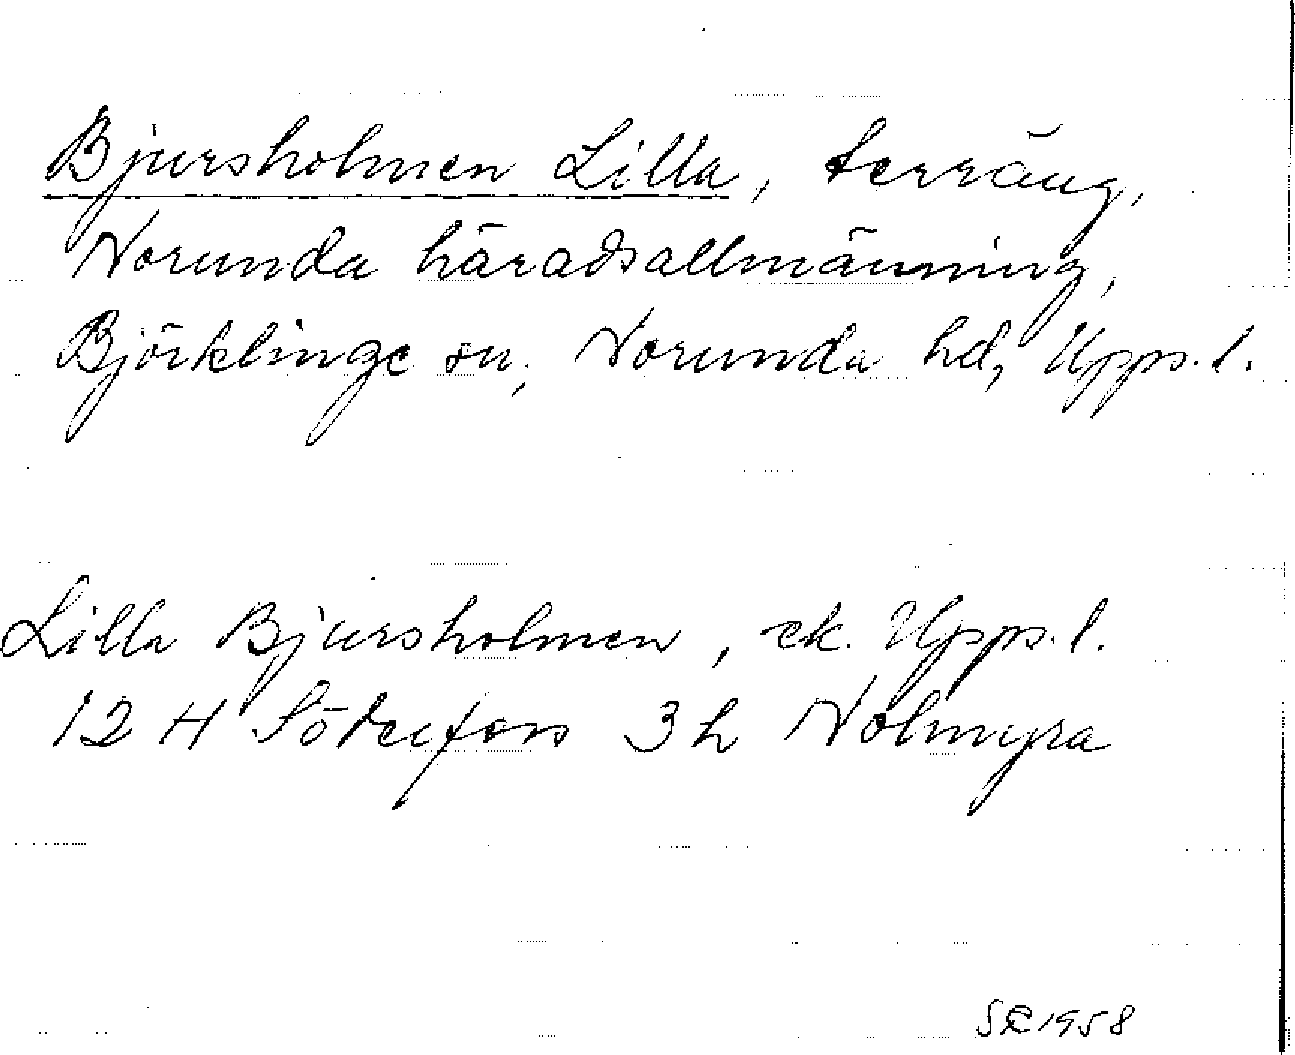 Bjursholmen Lilla, terräng,
Norunda häradsallmänning,
Björklinge sn, Norunda hd, Upps. l.
Lilla Bjursholmen, ek. Upps. l.
12 H Söderfors 3 h Nolmyra
SE 1958